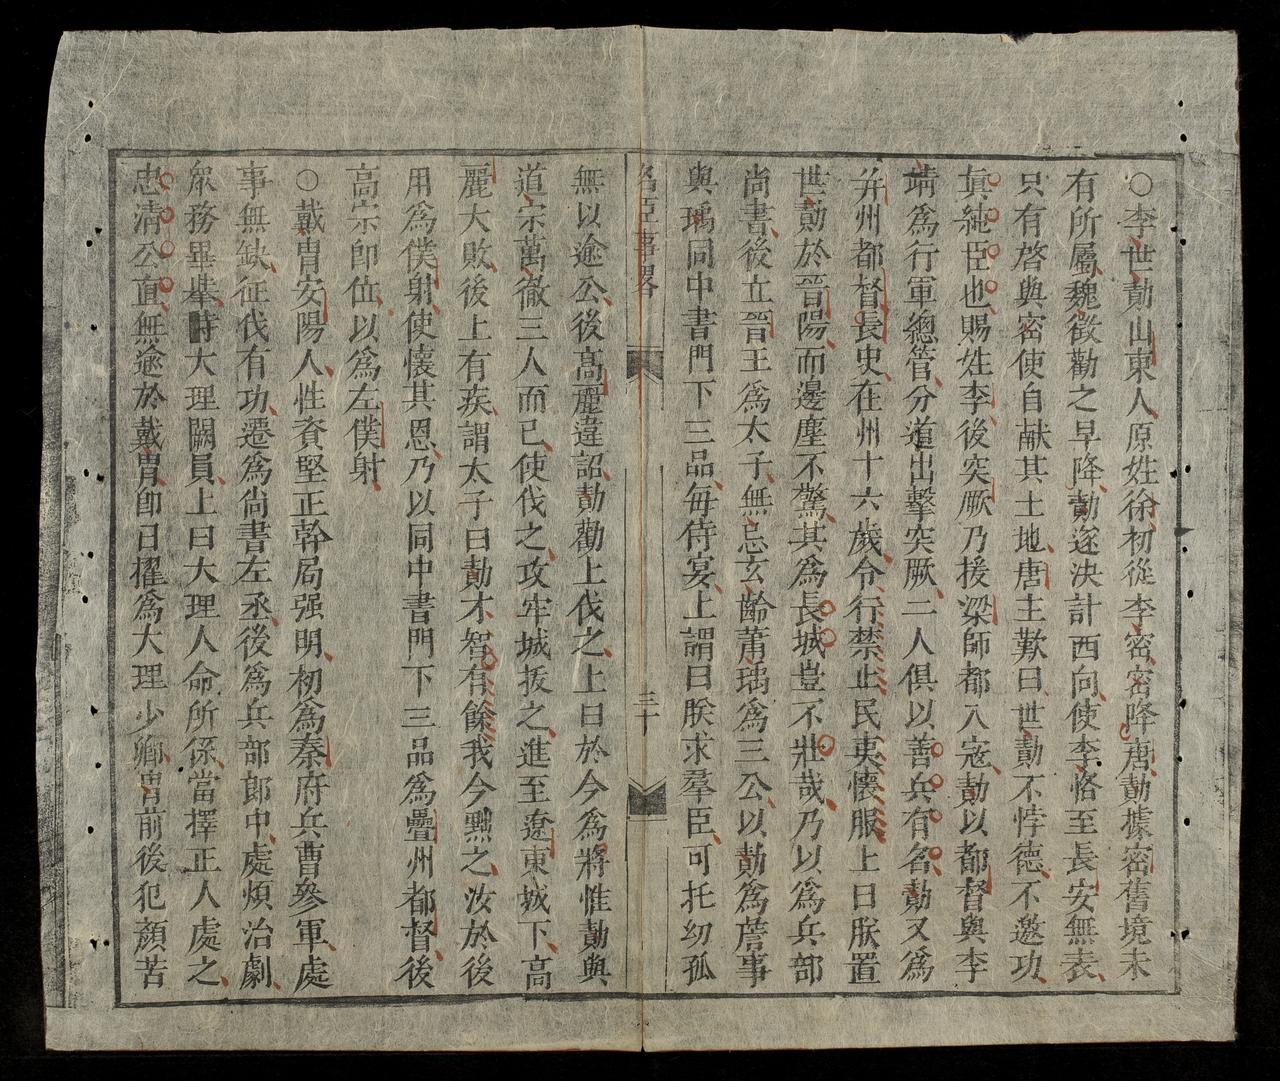 ○李世勣山東人原姓徐初從李密密降唐勣據密舊境未
有所屬魏徵勸之早降勣遂決計西向使李恪至長安無表
只有啓與密使自献其土地唐主歎曰世勣不悖德不邀功
眞純臣也賜姓李後突厥乃援梁師都入寇勣以都督與李
靖爲行軍總管分道出擊突厥二人俱以善兵有名勣又爲
并州都督長史在州十六歲令行禁止民夷懷服上曰朕置
世勣於晉陽而邊塵不驚其爲長城豈不壯哉乃以爲兵部
尚書後立晉王爲太子無忌玄齡蕭瑀爲三公以勣爲詹事
與瑀同中書門下三品每侍宴上謂曰朕求羣臣可托幼孤
名臣事畧
三十
無以逾公後高麗違詔勣勸上伐之上曰於今爲將惟勣與
道宗萬徹三人而已使伐之攻牢城拔之進至遼東城下高
麗大敗後上有疾謂太子曰勣才智有餘我今黜之汝於後
用爲僕射使懷其恩乃以同中書門下三品爲疊州都督後
高宗卽位以爲左僕射
○戴冑安陽人性資堅正幹局强明初爲秦府兵曹參軍處
事無缺征伐有功遷爲尚書左丞後爲兵部郎中處煩治劇
衆務畢擧時大理闕員上曰大理人命所係當擇正人處之
忠清公直無逾於戴冑卽日擢爲大理少卿冑前後犯顏苦